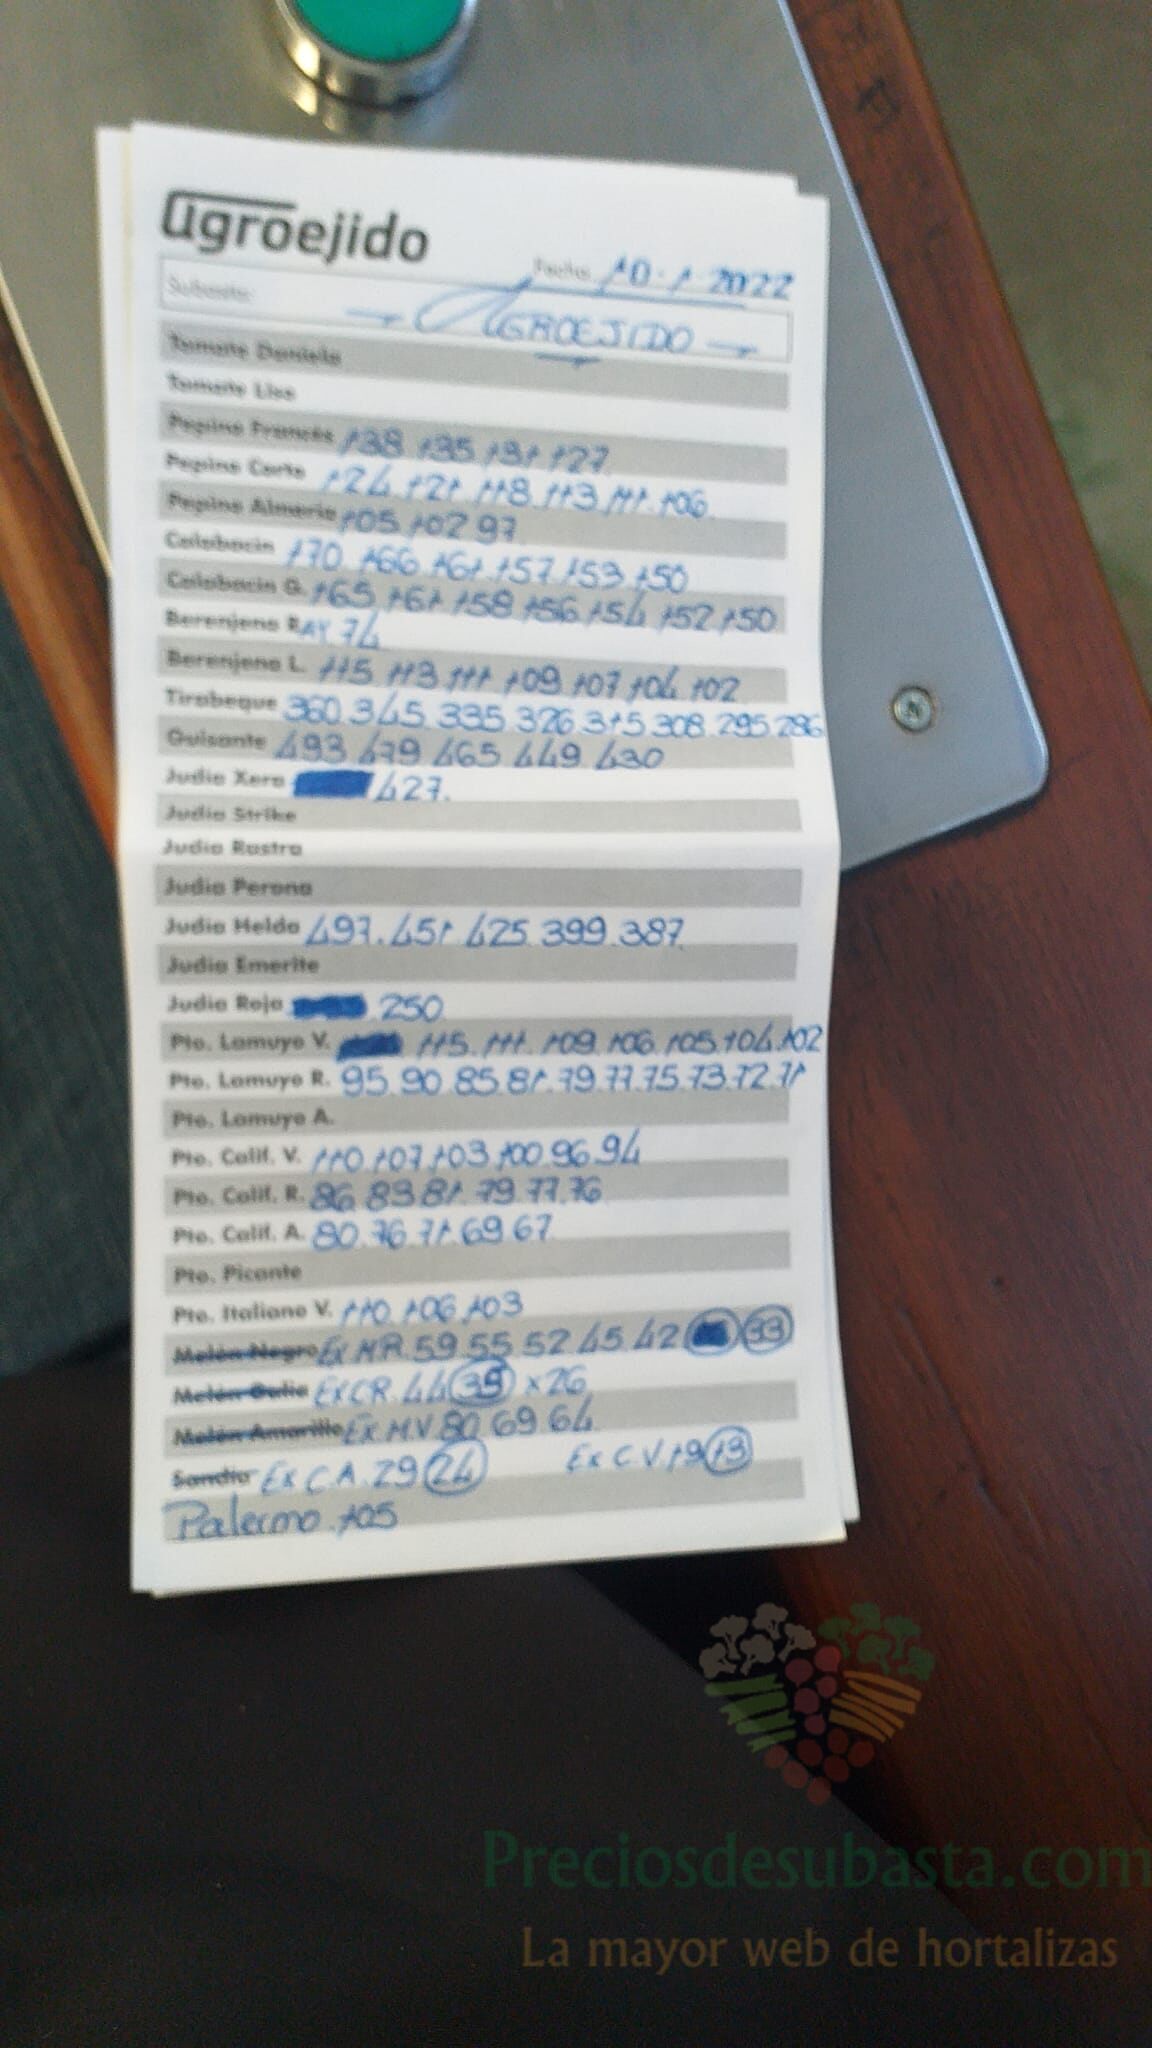 agroejido
Fecha: 10.1.2022
Subasta: AGROEJIDO
Tomate Daniela
Tomate Liso
Pepino Francés 138 135 131 127
Pepino Corto 124 121 118 113 111 106
Pepino Almeria 105 102 97
Calabacín 170 166 161 157 153 150
Calabacín G. 165 161 158 156 154 152 150
Berenjena RAY. 74
Berenjena L. 115 113 111 109 107 104 102
Tirabeque 360 345 335 326 315 308 295 286
Guisante 493 479 465 449 430
Judia Xera 427.
Judia Strike
Judia Rastra
Judia Perona
Judia Helda 497.451 425 399 387
Judia Emerite
Judia Roja 250
Pto. Lamuyo V. 115. 111. 109. 106. 105. 104. 102
Pto. Lamuyo R. 95.90.85.81.79.77.75.73.72.71
Pto. Lamuyo A.
Pto. Calif. V. 110.107.103.100.96.94
Pto. Calif. R. 86 83 81.79.77.76
Pto. Calif. A. 80.76.71.69 67
Pto. Picante
Pto. Italiano V. 110.106.103
Melón Negro Ex MR. 59 55 52 45 42 33
Melón Galia Ex CR. 44 35 x 26
Melón Amarillo Ex M.V. 80 69 64
Sandia Ex C.A. 29 24 Ex C.V. 19 13
Palermo. 105
Preciosdesubasta.com
La mayor web de hortalizas